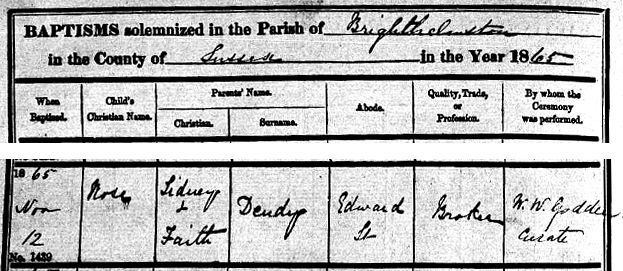 BAPTISMS solemnized in the Parish of Brighthelmston
in the County of Sussex in the Year 1865
When Baptized. Child's Christian Name. Parents' Name. Christian. Surname. Abode. Quality, Trade, or Profession. By whom the Ceremony was performed.
1865
Nov
12
No. 1439
Rose
Sidney
&
Faith
Dendy
Edward
St
Broker
W. W. Godden
Curate